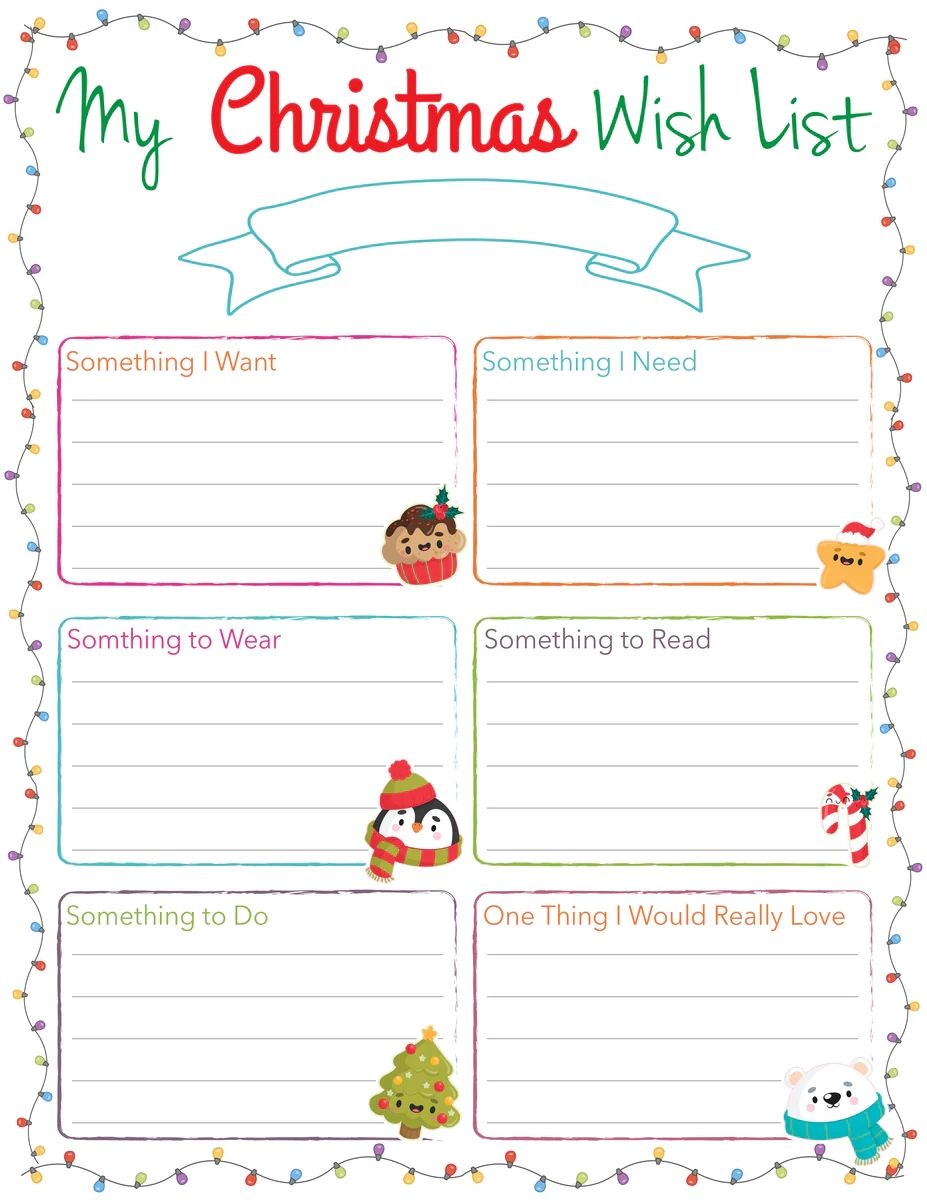 My Christmas Wish List
Something I Want
Something I Need
Somthing to Wear
Something to Read
Something to Do
One Thing I Would Really Love